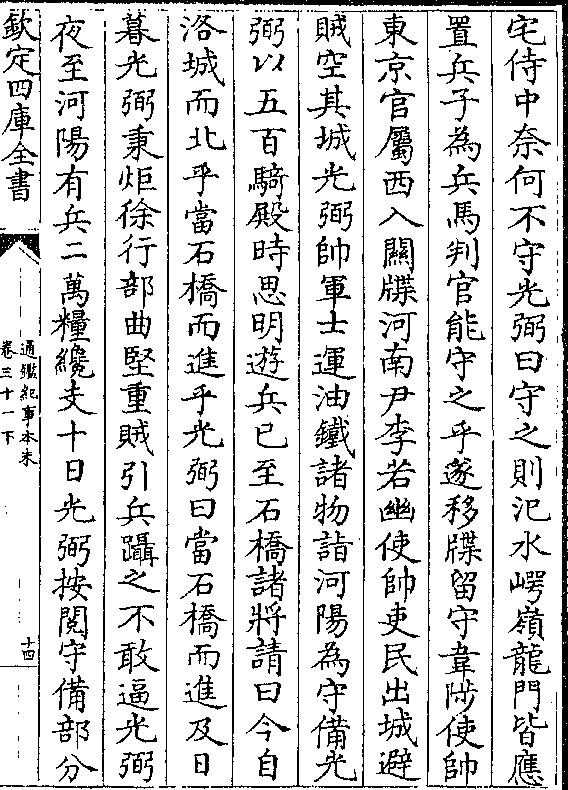 宅侍中奈何不守光弼曰守之則汜水崿嶺龍門皆應
置兵子為兵馬判官能守之乎遂移牒留守韋陟使帥
東京官屬西入關牒河南尹李若幽使帥吏民出城避
賊空其城光弼帥軍士運油鐵諸物詣河陽為守備光
弼以五百騎殿時思明遊兵已至石橋諸將請曰今自
洛城而北乎當石橋而進乎光弼曰當石橋而進及日
暮光弼秉炬徐行部曲堅重賊引兵躡之不敢逼光弼
夜至河陽有兵二萬糧纔支十日光弼按閱守備部分
欽定四庫全書
通鑑紀事本末
卷三十一下
十四